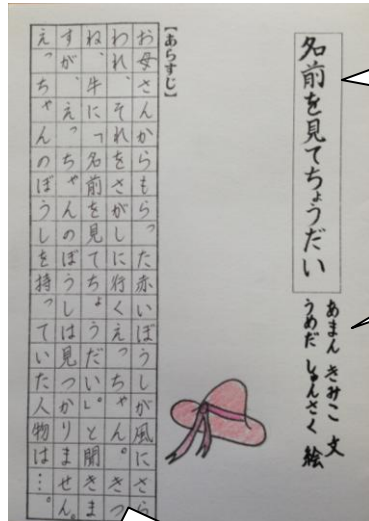 名前を見てちょうだい
あまん きみこ 文
うめだ しゅんさく 絵
【あらすじ】
お母さんからもらった赤いぼうしが風にさら
われ、それをさがしに行くえっちゃん。きつ
ね、牛に「名前を見てちょうだい。」と聞きま
すが、えっちゃんのぼうしは見つかりません。
えっちゃんのぼうしを持っていた人物は…。